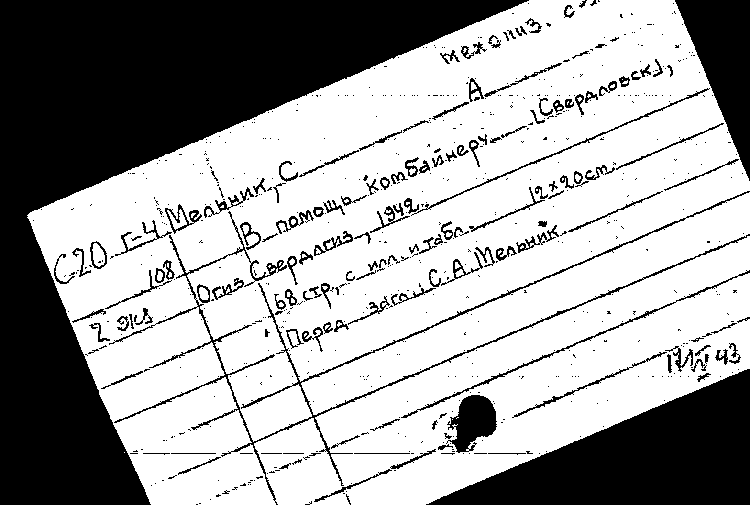 механиз. с
А
С20 Г-4 Мельник, С
108 В помощь комбайнеру [Свердловск],
2 экз Огиз Свердлгиз, 1942.
68 стр, с илл. и табл. 12×20 см.
Перед загл.: С.А. Мельник
17/IV 43